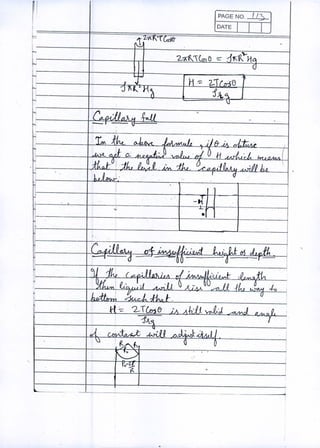 PAGE NO. 113
DATE
2πRTCosθ
2πRTCosθ = ρπR²Hg
ρπR²Hg
H = 2TCosθ
ρrg
Capillary fall
In the above formula, if θ is obtuse
we get a negative value of H which means
that the level in the capillary will be
below.
Capillary of insufficient height or depth
If the capillaries of insufficient length
then liquid will rise all the way to
bottom such that
H = 2TCosθ is still valid and angle
ρrg
of contact will adjust itself.